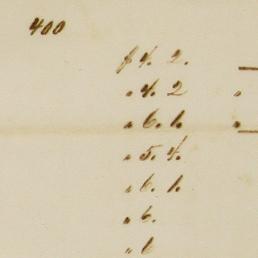 400
f 4. 2.
" 4. 2 "
" 6. 1. "
" 5. 4.
" 6. 1.
" 6.
" 6